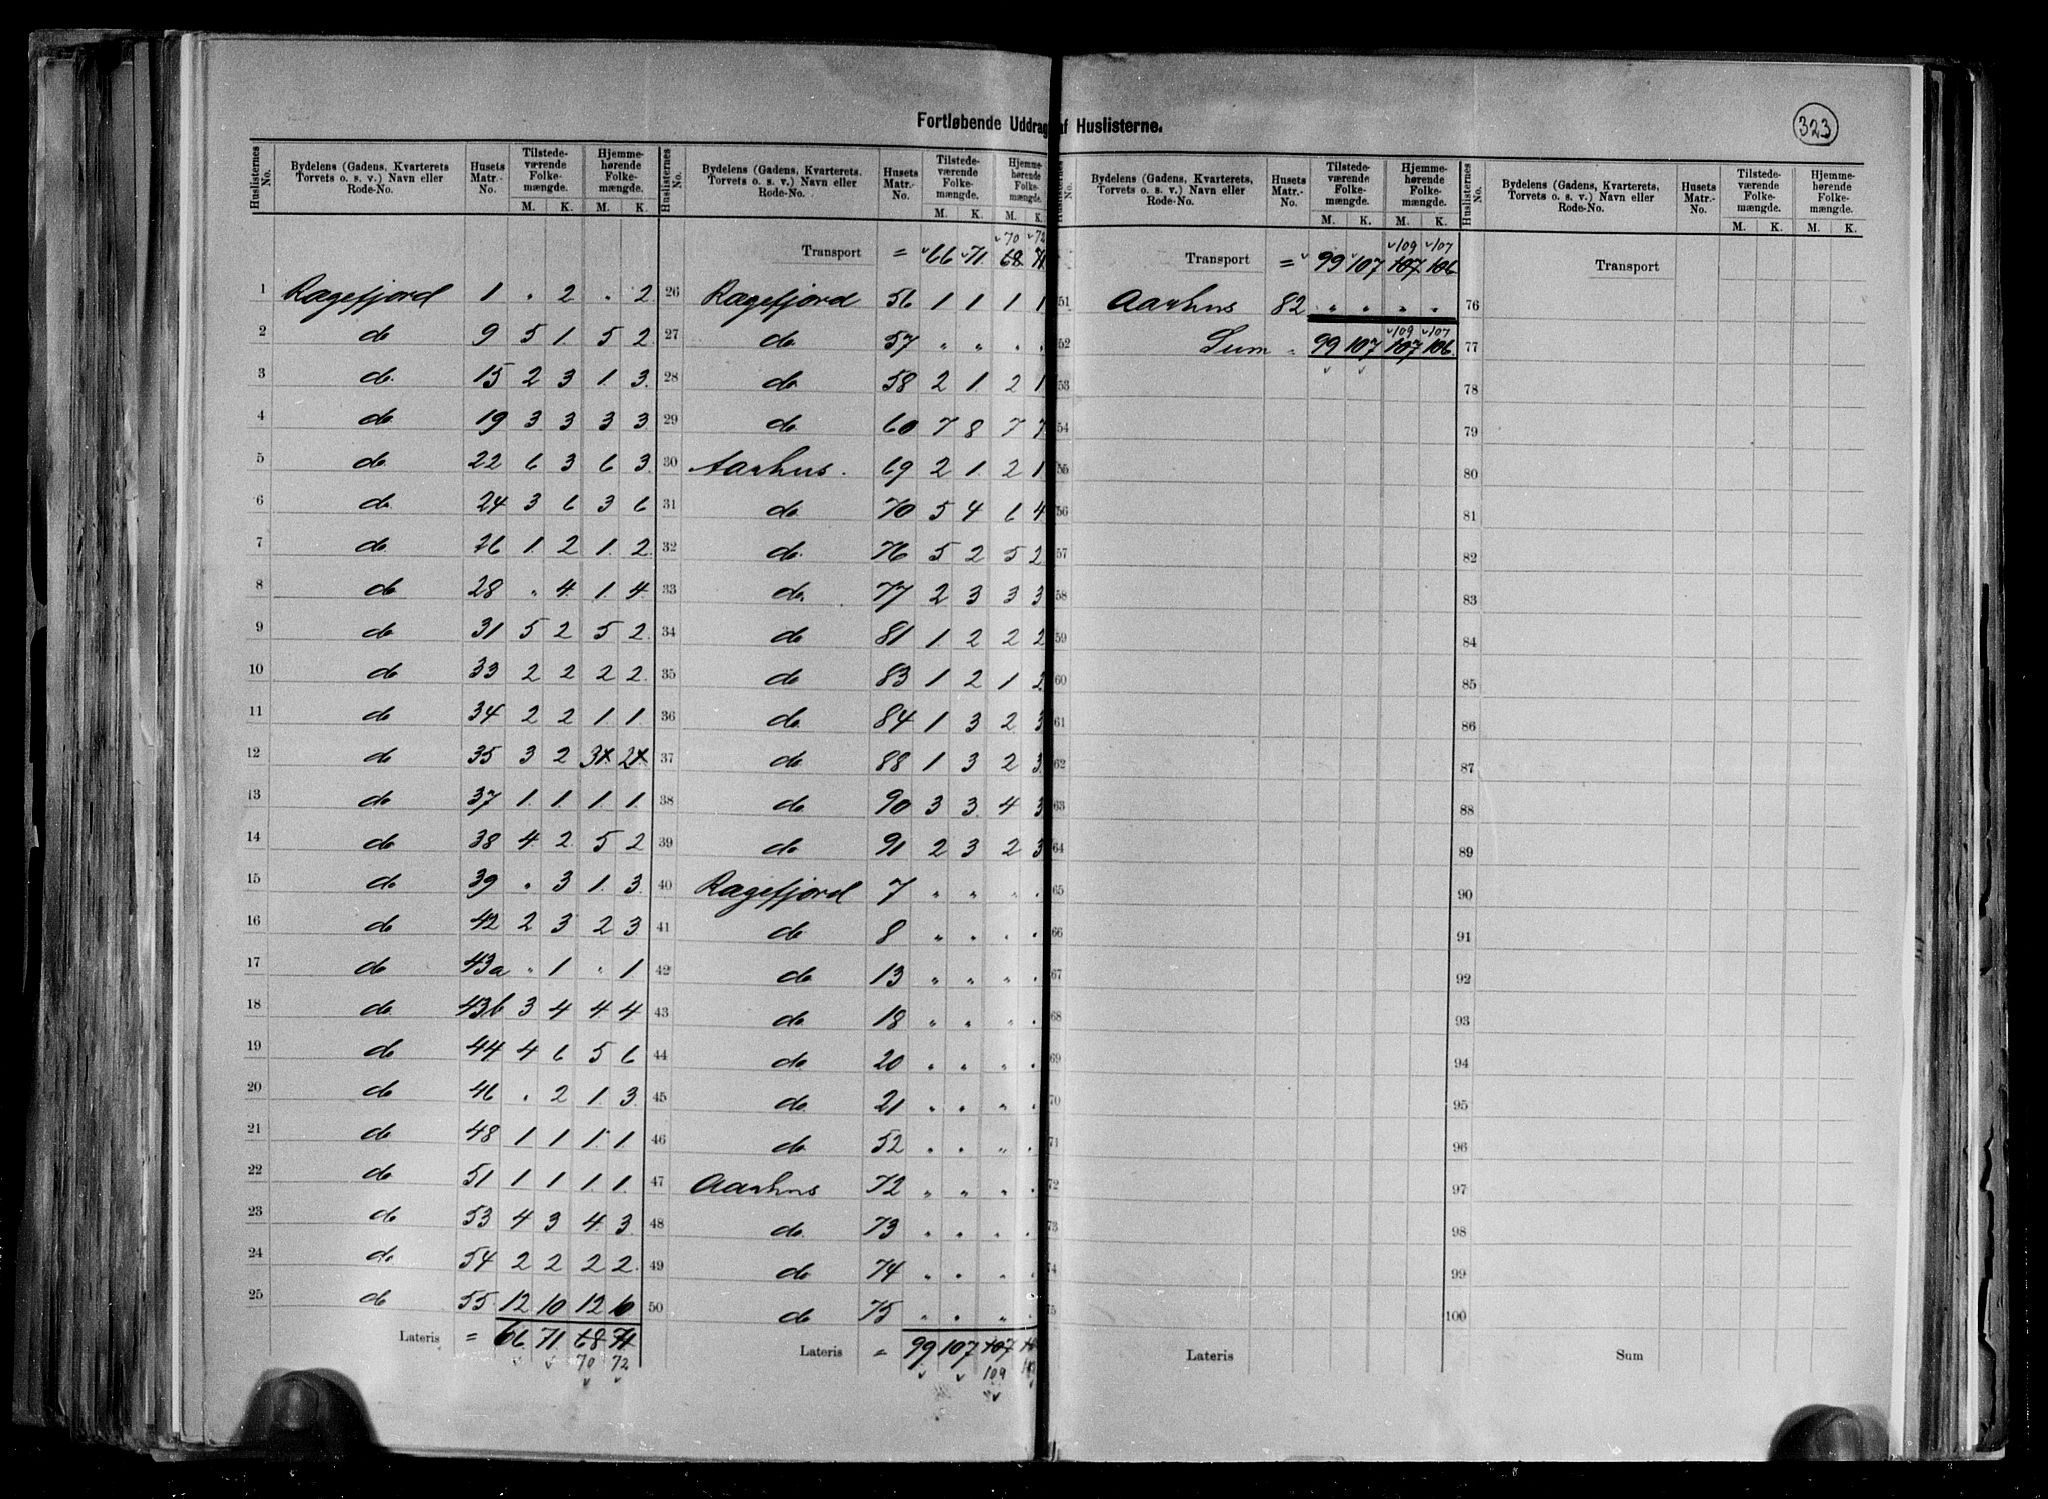 323
Fortløbende Uddrag af Huslisterne.
Huslisternes No. Bydelens (Gadens, Kvarterets Torvets o. s. v.) Navn eller Rode-No. Husets Matr.-No. Tilstedeværende Folkemængde. M. K. Hjemmehørende Folkemængde. M. K.
1 Rægefjord 1 " 2 " 2
2 do 9 5 1 5 2
3 do. 15 2 3 1 3
4 do 19 3 3 3 3
5 do 22 6 3 6 3
6 do 24 3 6 3 6
7 do 26 1 2 1 2
8 do 28 " 4 1 4
9 do 31 5 2 5 2
10 do 33 2 2 2 2
11 do 34 2 2 1 1
12 do 35 3 2 3 2
13 do 37 1 1 1 1
14 do 38 4 2 5 2
15 do 39 " 3 1 3
16 do 42 2 3 2 3
17 do 43a " 1 " 1
18 do 43b 3 4 4 4
19 do 44 4 6 5 6
20 do 46 " 2 1 3
21 do 48 1 1 1 1
22 do 51 1 1 1 1
23 do 53 4 3 4 3
24 do 54 2 2 2 2
25 do 55 12 10 12 10
Lateris = 66 71 68 71
70 72
Huslisternes No. Bydelens (Gadens, Kvarterets, Torvets o. s. v.) Navn eller Rode-No. Husets Matr.-No. Tilstedeværende Folkemængde. M. K. Hjemmehørende Folkemængde. M. K.
70 72
Transport = 66 71 68 71
26 Rægefjord 56 1 1 1 1
27 do 57 " " " "
28 do 58 2 1 2 1
29 do 60 7 8 7 7
30 Aarhus. 69 2 1 2 1
31 do 70 5 4 6 4
32 do. 76 5 2 5 2
33 do. 77 2 3 3 3
34 do 81 1 2 2 2
35 do 83 1 2 1 2
36 do 84 1 3 2 3
37 do 88 1 3 2 3
38 do 90 3 3 4 3
39 do 91 2 3 2 3
40 Rægefjord 7 " " " "
41 do 8 " " " "
42 do 13 " " " "
43 do 18 " " " "
44 do 20 " " " "
45 do 21 " " " "
46 do 52 " " " "
47 Aarhus 72 " " " "
48 do 73 " " " "
49 do 74 " " " "
50 do 75 " " " "
Lateris = 99 107 107
109
Huslisternes No. Bydelens (Gadens, Kvarterets, Torvets o. s. v.) Navn eller Rode-No. Husets Matr.-No. Tilstedeværende Folkemængde. M. K. Hjemmehørende Folkemængde. M. K.
109 107
Transport = 99 107 107 106
51 Aarhus 82 " " " "
109 107
52 Sum " 99 107 107 106
53
54
55
56
57
58
59
60
61
62
63
64
65
66
67
68
69
70
71
72
73
74
75
Lateris
Huslisternes No. Bydelens (Gadens, Kvarterets, Torvets o. s. v.) Navn eller Rode-No. Husets Matr.-No. Tilstedeværende Folkemængde. M. K. Hjemmehørende Folkemængde. M. K.
Transport
76
77
78
79
80
81
82
83
84
85
86
87
88
89
90
91
92
93
94
95
96
97
98
99
100
Sum